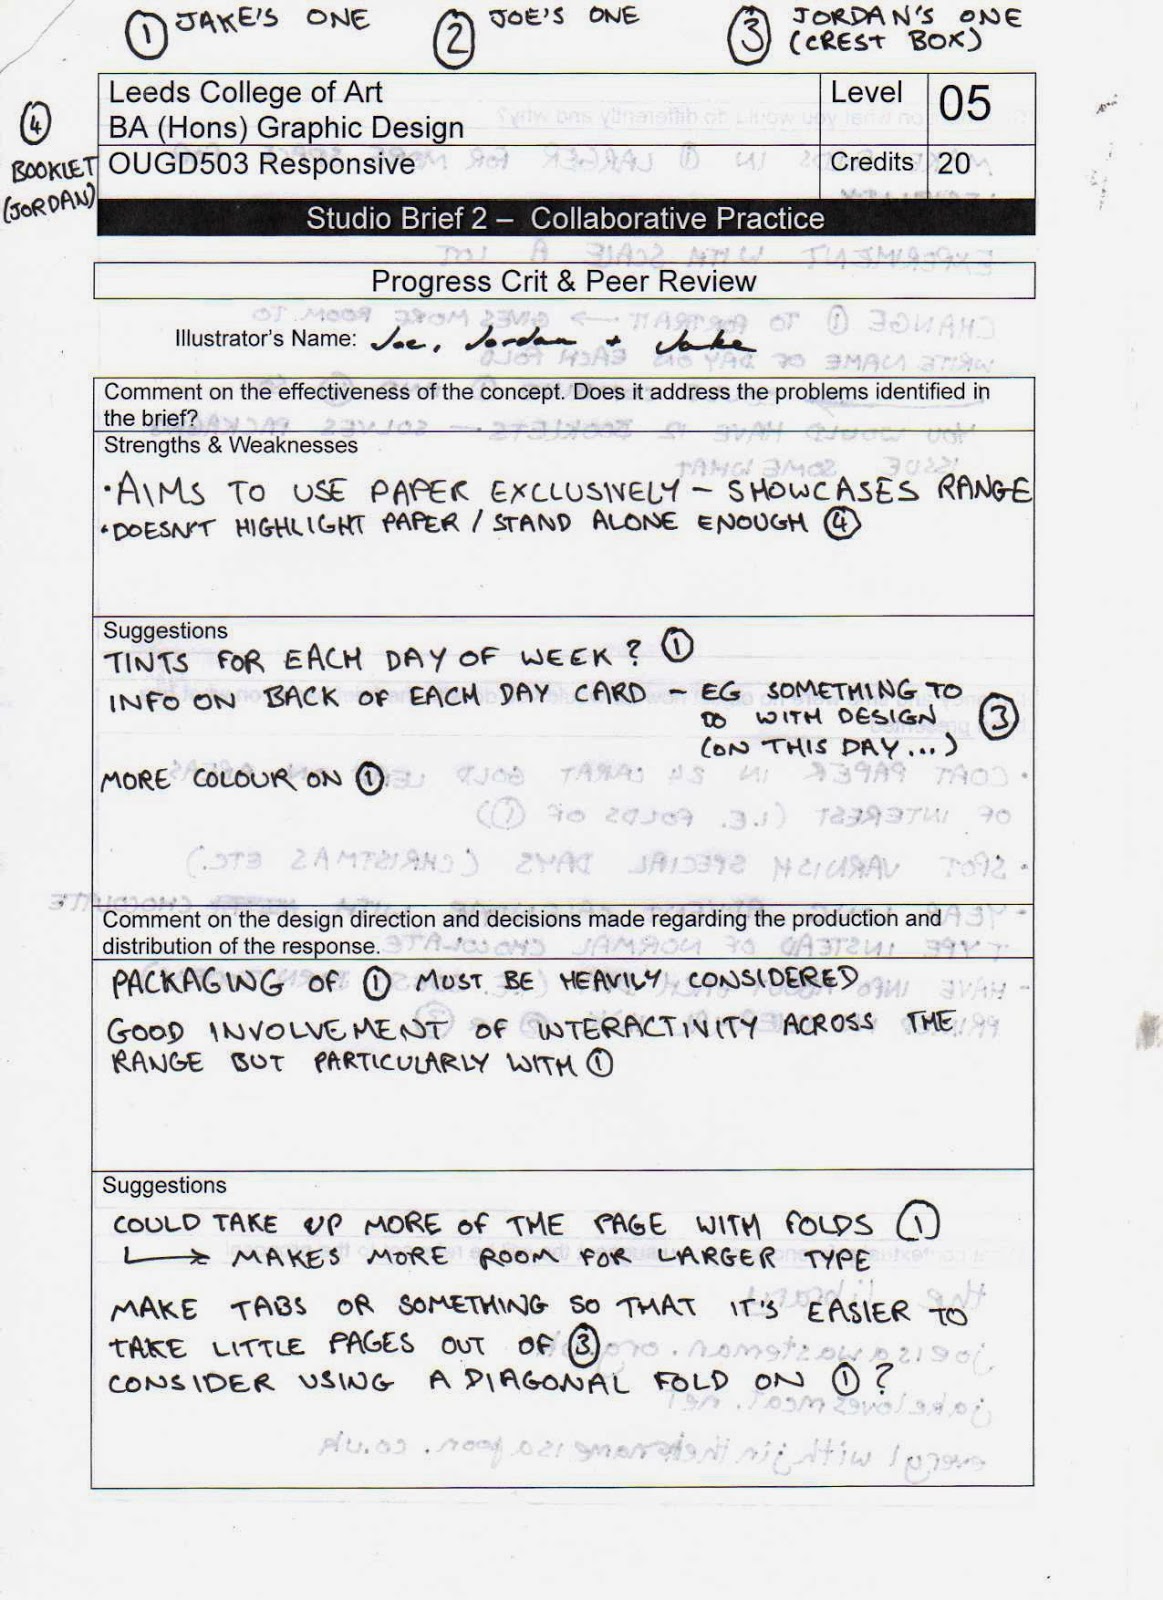 ① JAKE'S ONE ② JOE'S ONE ③ JORDAN'S ONE
(CREST BOX)
④
BOOKLET
(JORDAN)
Leeds College of Art
BA (Hons) Graphic Design
Level 05
OUGD503 Responsive
Credits 20
Studio Brief 2 – Collaborative Practice
Progress Crit & Peer Review
Illustrator's Name: Joe, Jordan + Jake
Comment on the effectiveness of the concept. Does it address the problems identified in
the brief?
Strengths & Weaknesses
· AIMS TO USE PAPER EXCLUSIVELY – SHOWCASES RANGE
· DOESN'T HIGHLIGHT PAPER / STAND ALONE ENOUGH ④
Suggestions
TINTS FOR EACH DAY OF WEEK? ①
INFO ON BACK OF EACH DAY CARD – EG SOMETHING TO
DO WITH DESIGN ③
(ON THIS DAY...)
MORE COLOUR ON ①
Comment on the design direction and decisions made regarding the production and
distribution of the response.
PACKAGING OF ① MUST BE HEAVILY CONSIDERED
GOOD INVOLVEMENT OF INTERACTIVITY ACROSS THE
RANGE BUT PARTICULARLY WITH ①
Suggestions
COULD TAKE UP MORE OF THE PAGE WITH FOLDS ①
↳ MAKES MORE ROOM FOR LARGER TYPE
MAKE TABS OR SOMETHING SO THAT IT'S EASIER TO
TAKE LITTLE PAGES OUT OF ③
CONSIDER USING A DIAGONAL FOLD ON ①?